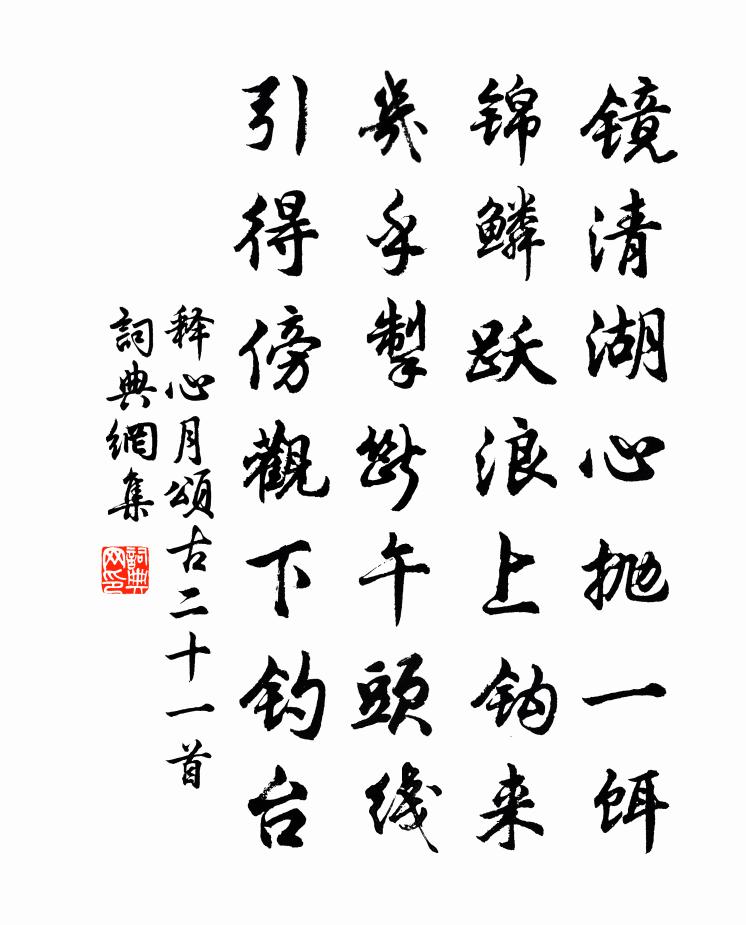 镜清湖心抛一饵
锦鳞跃浪上钩来
几乎掣断午头线
引得傍觀下钓台
释心月頌古二十一首
詞典網集
詞典网印